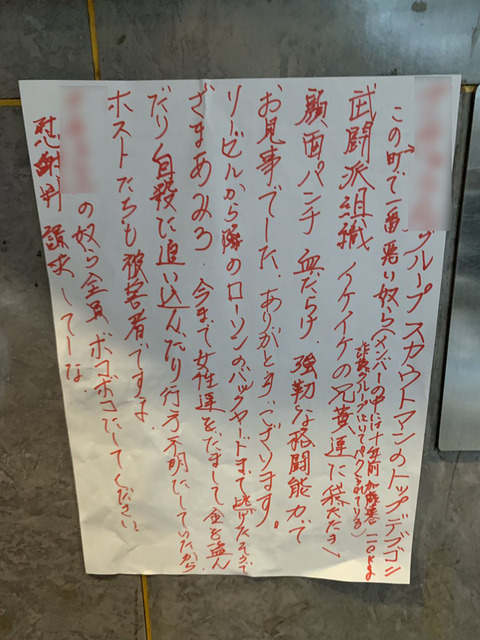 グループスカウトマンのトップデゴン
この町で一番悪い奴ら(メンバーの中には十年前加藤巻二〇kg
詐欺グループにいてパクられている)
武闘派組織 イケイケの兄貴達に袋だたき
顔面パンチ 血だらけ 強靭な格闘能力で
お見事でした。ありがとうございます。
リービルから隣のローソンのバックヤードまで逃げたそうで
ざまあみろ.今まで女性達をだまして金を盗ん
だり自殺に追い込んだり行方不明にしていたから
ホストたちも被害者ですよ
の奴ら全員 ボコボコにしてください
慰謝料 請求してーな